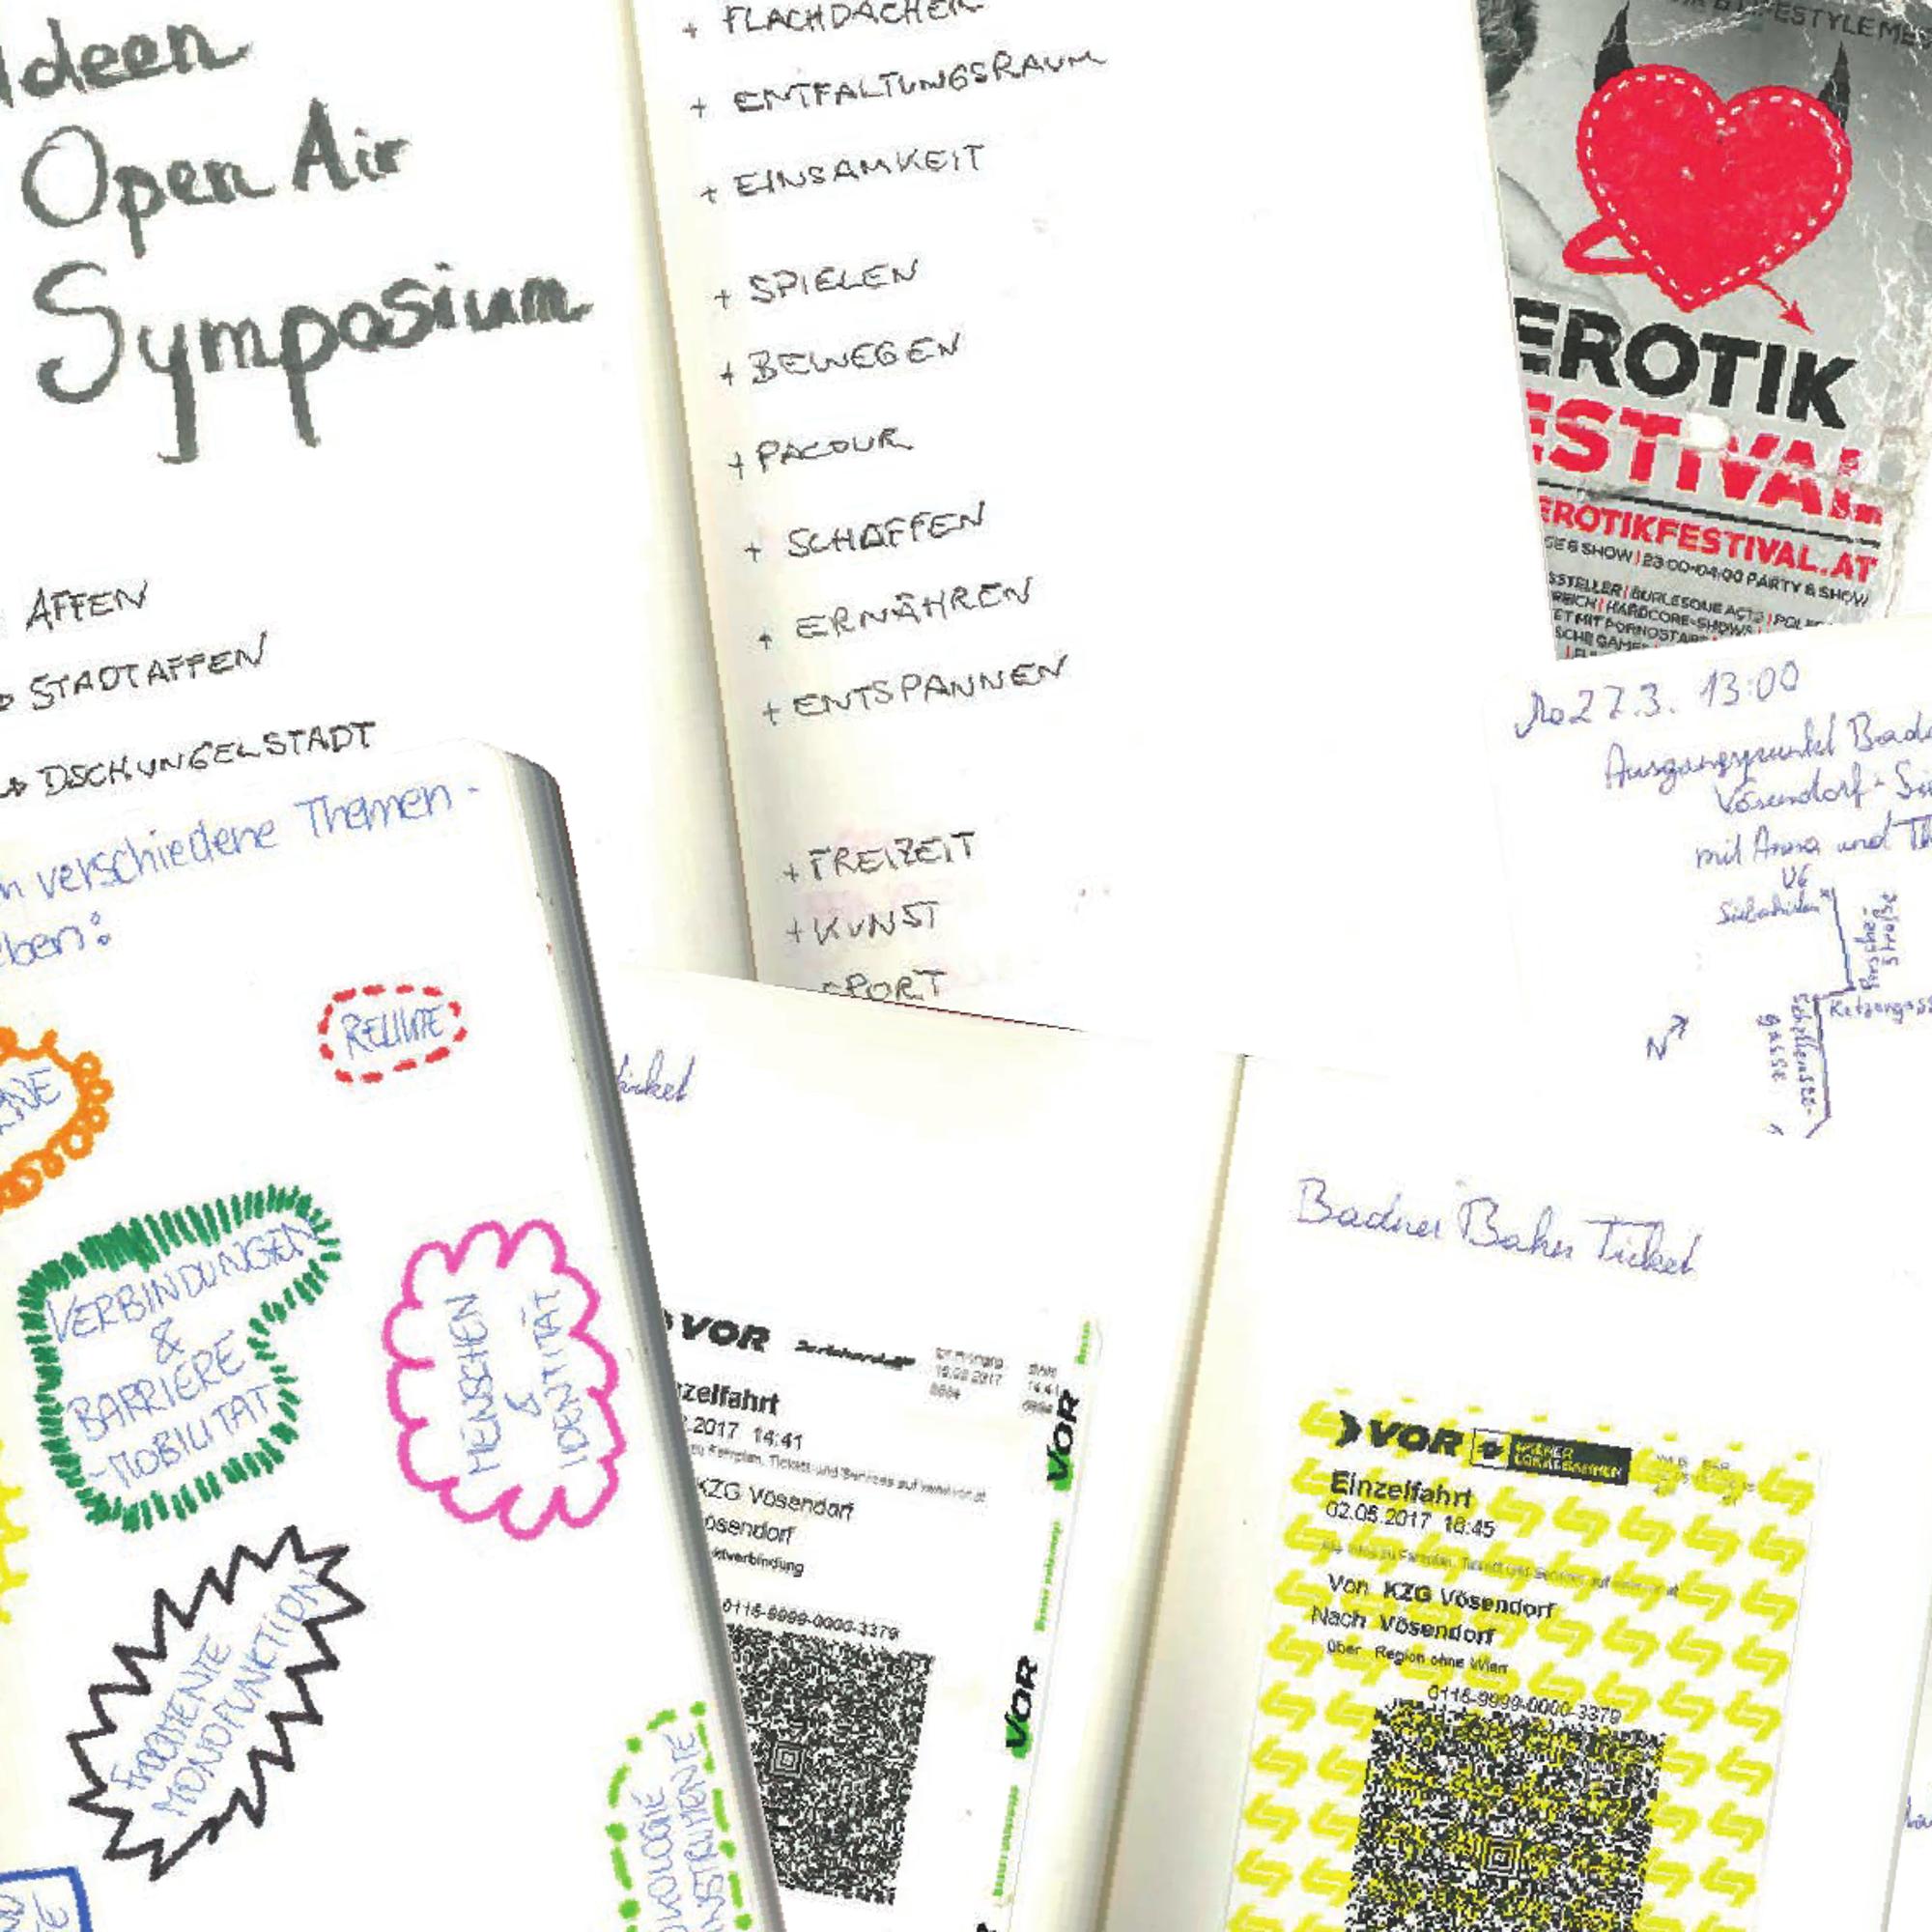 Ideen
Open Air
Symposium
AFFEN
STADTAFFEN
DSCHUNGELSTADT
+ FLACHDÄCHER
+ ENTFALTUNGSRAUM
+ EINSAMKEIT
+ SPIELEN
+ BEWEGEN
+ PACOUR
+ SCHAFFEN
+ ERNÄHREN
+ ENTSPANNEN
+ FREIZEIT
+ KUNST
PORT
ESTYLE ME
EROTIK
ESTIVAL
EROTIKFESTIVAL.AT
GE & SHOW | 23:00-04:00 PARTY & SHOW
SSTELLER | BURLESQUE ACTS | POLE
REICH | HARDCORE-SHOWS
ET MIT PORNOSTARS
SCHE GAMES
Mo 27.3. 13:00
Ausgangspunkt Bad
Vösendorf - Si
mit Anna und Th
U6
Siebenhirten
Porsche-
straße
Ketzergas
gasse
N
verschiedene Themen-
ben:
RELIKTE
NE
VERBINDUNGEN
&
BARRIERE
-MOBILITÄT
MENSCHEN
&
IDENTITÄT
FRAGMENTE
MONOFUNKTION
ÖKOLOGIE
INSTRUMENTE
ticket
VOR
nzelfahrt
.2017 14:41
zu Fahrplan, Tickets und Services auf www.vor.at
KZG Vösendorf
ösendorf
ktverbindung
0115-9999-0000-3379
VOR
VOR
Badner Bahn Ticket
VOR WIENER LOKALBAHNEN
Einzelfahrt
02.05.2017 16:45
Alle Infos zu Fahrplan, Tickets und Services auf www.vor.at
Von KZG Vösendorf
Nach Vösendorf
über Region ohne Wien
0115-9999-0000-3379